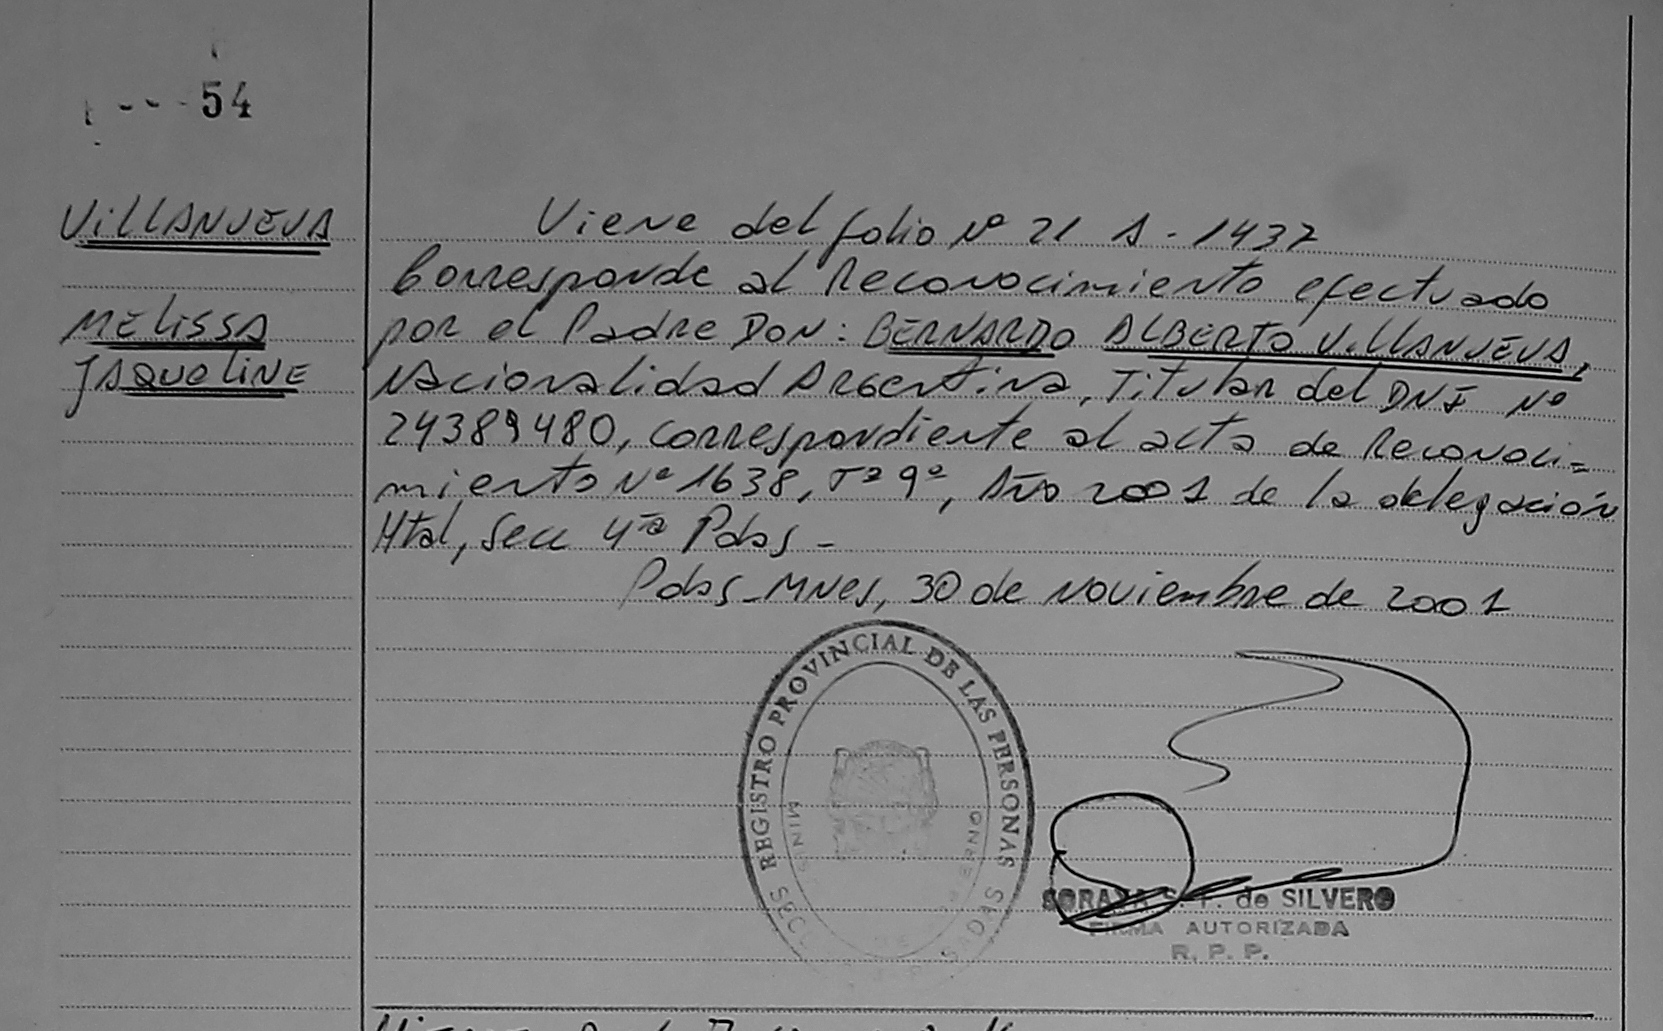 54
VILLANUEVA
MELISSA
JAQUELINE
Viene del folio Nº 21 A - 1437
Corresponde al Reconocimiento efectuado
por el Padre Don: BERNARDO ALBERTO VILLANUEVA,
Nacionalidad Argentina, Titular del DNI Nº
24389480, correspondiente al acta de Reconoci-
miento Nº 1638, Tº 9º, Año 2001 de la delegación
Htal, Secc 4ta Pdas -
Pdas - Mnes, 30 de Noviembre de 2001
REGISTRO PROVINCIAL DE LAS PERSONAS
de SILVERO
FIRMA AUTORIZADA
R. P. P.